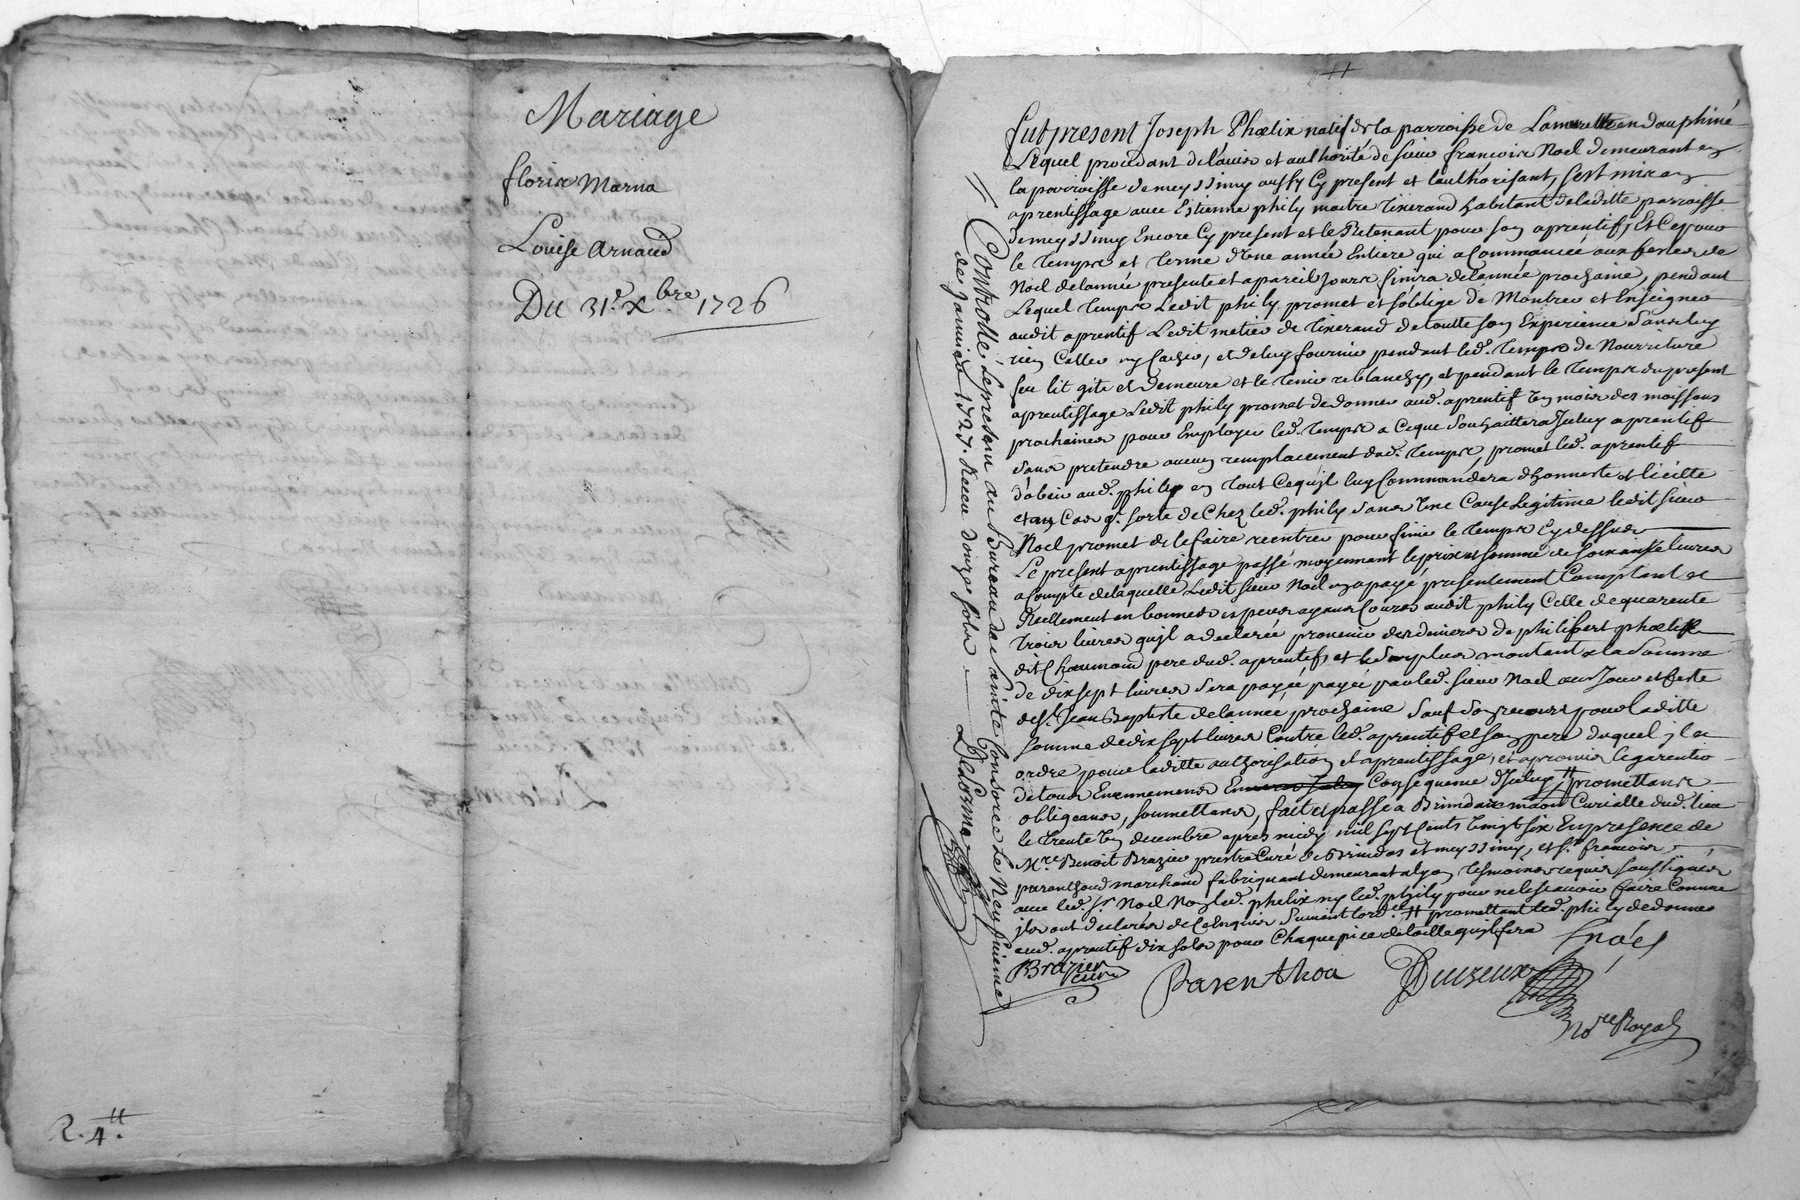 Mariage
floris Marna
Louise Arnaud
Du 31e. Xbre. 1726
R. 4tt.
fut present Joseph Phœlix natif de la parroisse de Lamurette en dauphiné
Lequel procedant de l'avis et authorité de sieur françois Noel demeurant en
la parroisse de meyssimy aussy Cy present et l'authorisant, s'est mis en
aprentissage avec Estienne phily maitre Tixerand habitant de laditte parroisse
de meyssimy Encore Cy present et le Retenant pour son aprentif, Et Ce pour
le Temps et Terme d'une année Entiere qui a Commancée aux festes de
Noel de lannée presente et a pareil Jours finira de lannée prochaine, pendant
Lequel Temps Ledit phily promet et soblige de Montrer et Enseigner
audit aprentif Ledit metier de Tixerand de toutte son Experience sans luy
rien Celler ny Cacher, et de luy fournir pendant led. Temps de Nourriture
feu lit gite et demeure et le Tenir reblanchy, et pendant le Temps du present
aprentissage Ledit phily promet de donner aud. aprentif un mois des moissons
prochaines pour Employer led. Temps a Ceque souhaittera Iceluy aprentif
sans pretendre aucun remplacement dud. Temps, promet led. aprentif
d'obeir aud. phily en Tout Cequ'jl luy Commandera d'honneste et licitte
et au Cas q'. sorte de Chez led. phily sans Une Cause Legitime ledit sieur
Noel promet de le faire rentrer pour finir le Temps Cy dessus
Le present aprentissage passé moyennant le prix et somme de soixante livres
a Compte de laquelle Ledit sieur Noel en a payé presentement Comptant et
Reellement en bonnes especes ayans Cours audit phily Celle de quarente
trois livres qu'jl a declarée provenir des deniers de philibert phœlix
dit Chaumond pere dud. aprentif, et le surplus montant a la somme
de dix sept livres sera payée payée par led. sieur Noel au Jour et feste
de st. Jean Baptiste de lannée prochaine sauf son recours pour laditte
somme de dix sept livres Contre led. aprentif et son pere duquel jl a
ordre pour laditte authorisation et aprentissage, et a promis le garentir
de tous Evennemens En Consequence d'Iceluy, tt promettans
obligeans, soumettans, fait et passé a Brindas maison Curialle dud. lieu
le trente un decembre apres midy mil sept Cents vingt six En presence de
Mre. Benoit Brazier prestre Curé de Brindas et meyssimy, et sr. françois
parenthoud marchand fabriquant demeurant a lyon Tesmoins requis soussignés
avec led. sr. Noel Non led. phelix ny led. phily pour ne le scavoir faire Comme
jls ont declarés de Ce Enquis suivant lord. tt promettant led. phily de donner
aud. aprentif dix sols pour Chaque piece de toille qu'jl fera
fnoél
Brazier
Curé
Parenthou
Duizeux
Nore Royal
Controllé le present au Bureau de Sainte Consorce Le Neufvieme
de Janvier 1727. Receu douze sols
Delorme